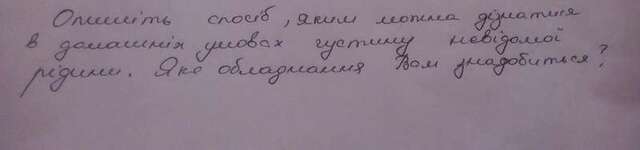 Опишіть спосіб, яким можна дізнатися
в домашніх умовах густину невідомої
рідини. Яке обладнання Вам знадобиться?